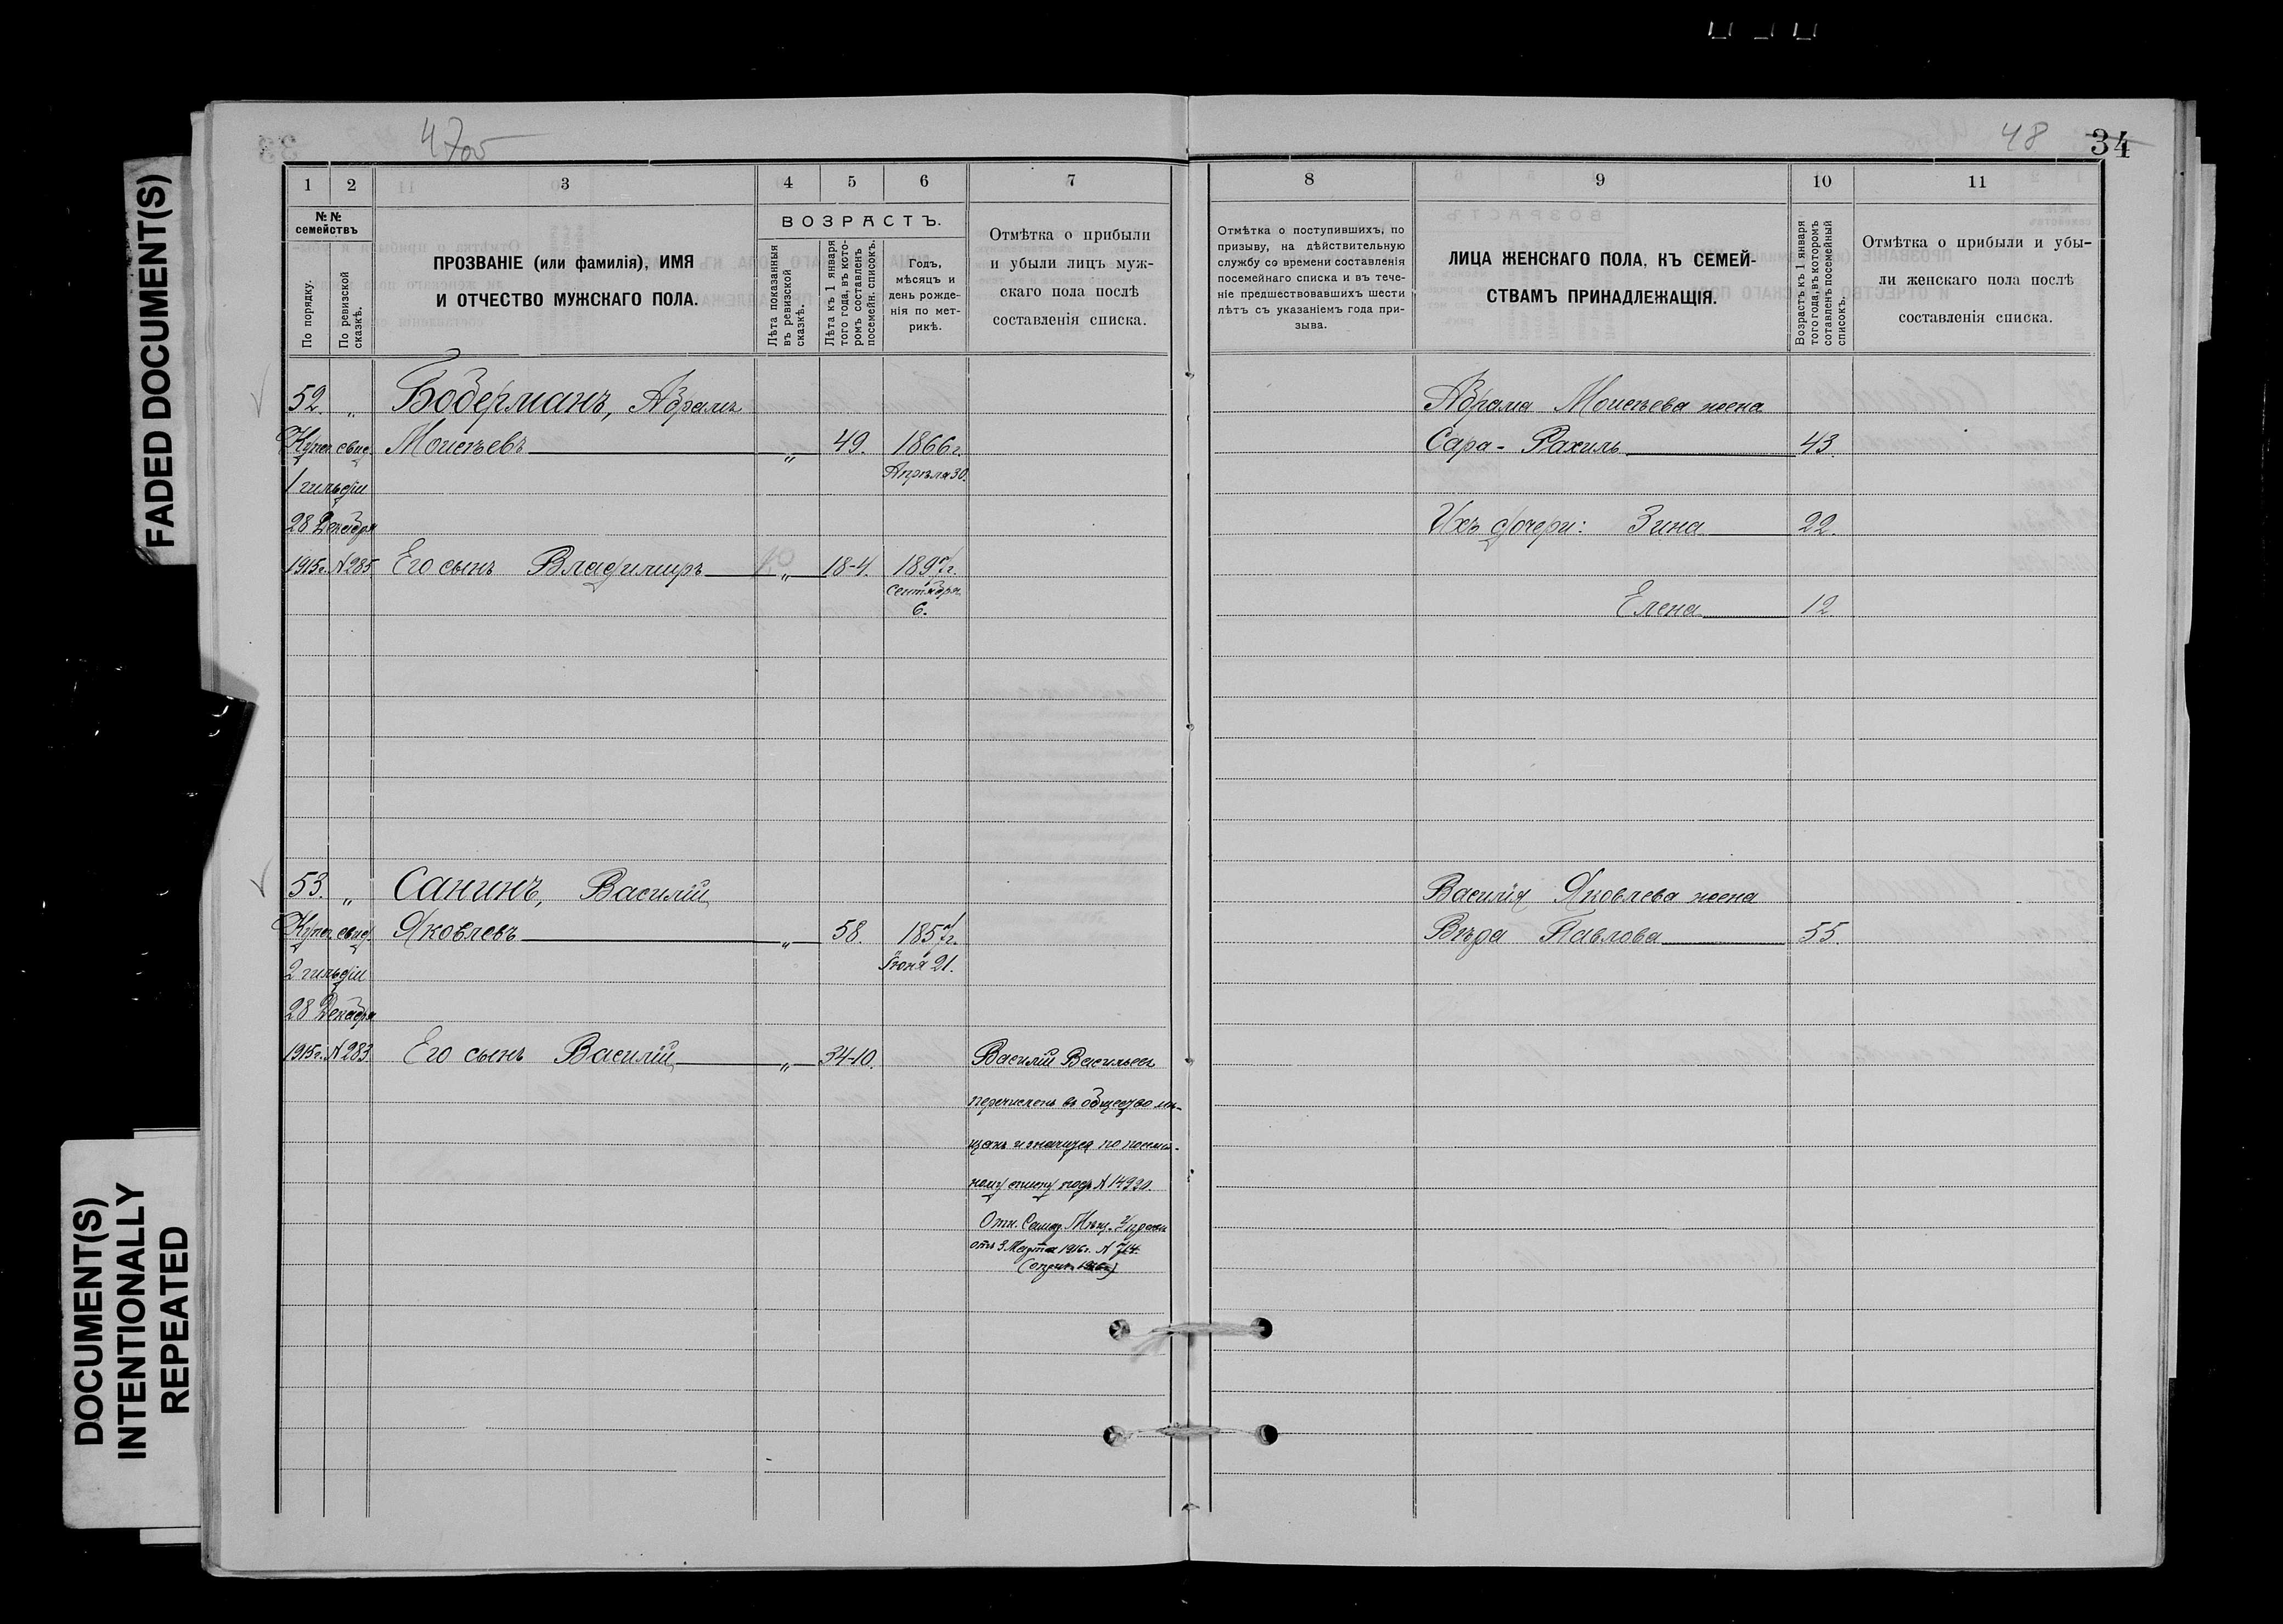 FADED DOCUMENT(S)
DOCUMENT(S)
INTENTIONALLY
REPEATED
47об
48 34
1 2 3 4 5 6 7
№№
семействъ
По порядку.
По ревизской
сказкѣ.
ПРОЗВАНІЕ (или фамилія), ИМЯ
И ОТЧЕСТВО МУЖСКАГО ПОЛА.
ВОЗРАСТЪ.
Лѣта показанныя
въ ревизской
сказкѣ.
Лѣта къ 1 января
того года, въ кото-
ромъ составленъ
посемейн. списокъ.
Годъ,
мѣсяцъ и
день рожде-
нія по мет-
рикѣ.
Отмѣтка о прибыли
и убыли лицъ муж-
скаго пола послѣ
составленія списка.
52. „ Бодерманъ, Абрамъ
Купеч. свид. Моисѣевъ „ 49. 1866г.
1 гильдіи Апрѣля 30.
28 Декабря
1915г. №285 Его сынъ Владимиръ „ 18-4. 1897г.
Сентября
6.
53. „ Санинъ, Василій
Купеч. свид. Яковлевъ „ 58. 1857г.
2 гильдіи Іюня 21.
28 Декабря
1915г. №283 Его сынъ Василій „ 34-10. Василій Васильевъ
перечисленъ въ общество мѣ-
щанъ и значится по посемей-
ному списку подъ № 14920.
Отн. Самар. Мѣщ. Управы
отъ 3 Марта 1916г. № 714.
8 9 10 11
Отмѣтка о поступившихъ, по
призыву, на дѣйствительную
службу со времени составленія
посемейнаго списка и въ тече-
ніе предшествовавшихъ шести
лѣтъ съ указаніемъ года при-
зыва.
ЛИЦА ЖЕНСКАГО ПОЛА, КЪ СЕМЕЙ-
СТВАМЪ ПРИНАДЛЕЖАЩІЯ.
Возрастъ къ 1 января
того года, въ которомъ
составленъ посемейный
списокъ.
Отмѣтка о прибыли и убы-
ли женскаго пола послѣ
составленія списка.
Абрама Моисѣева жена
Сара-Рахиль 43.
Ихъ дочери: Зина 22.
Елена 12
Василія Яковлева жена
Вѣра Павлова 55.